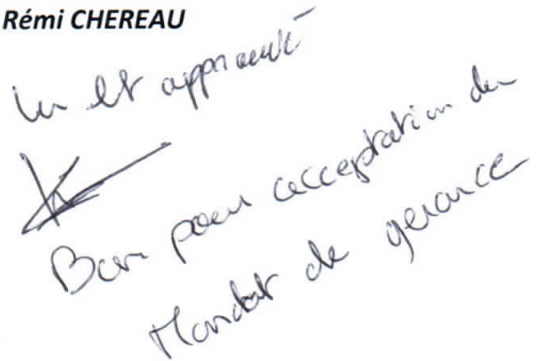 Rémi CHEREAU
lu et approuvé
Bon pour acceptation du
Mandat de gerance